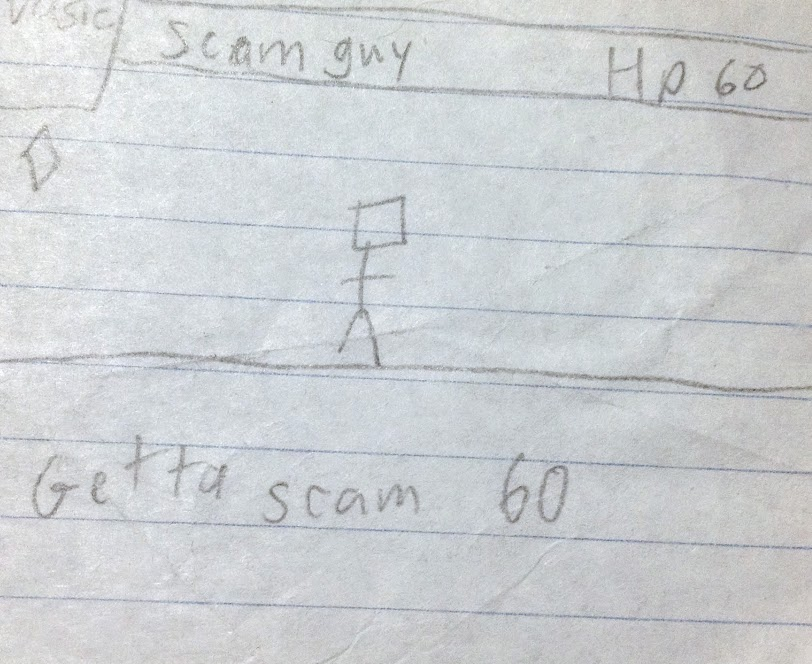 Scam guy Hp 60
Getta scam 60